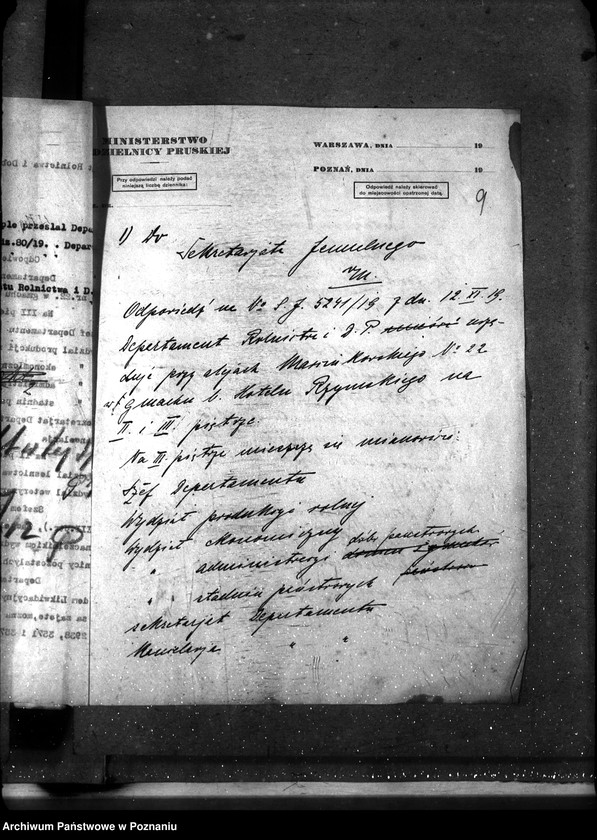 MINISTERSTWO
DZIELNICY PRUSKIEJ
Przy odpowiedzi należy podać
niniejszą liczbę dziennika:
WARSZAWA, DNIA 19
POZNAŃ, DNIA 19
Odpowiedź należy skierować
do miejscowości opatrzonej datą.
9
1) Do
Sekretarjatu Jeneralnego
w/m.
Odpowiedź na No S.J. 5241/19 z dn. 12.XI.19.
Departament Rolnictwa i D. P. urzę-
duje przy alejach Marcinkowskiego No 22
w gmachu b. Hotelu Rzymskiego na
II. i III. piętrze.
Na III. piętrze mieszczą się mianowicie:
Szef Departamentu
Wydział produkcji rolnej
Wydział ekonomiczny
" administracji dóbr państwowych
" stadnin państwowych
sekretarjat Departamentu
Kancelarja " "
ple przesłał Depa
is.80/19. . Depar
tu Rolnictwa i D.
Archiwum Państwowe w Poznaniu